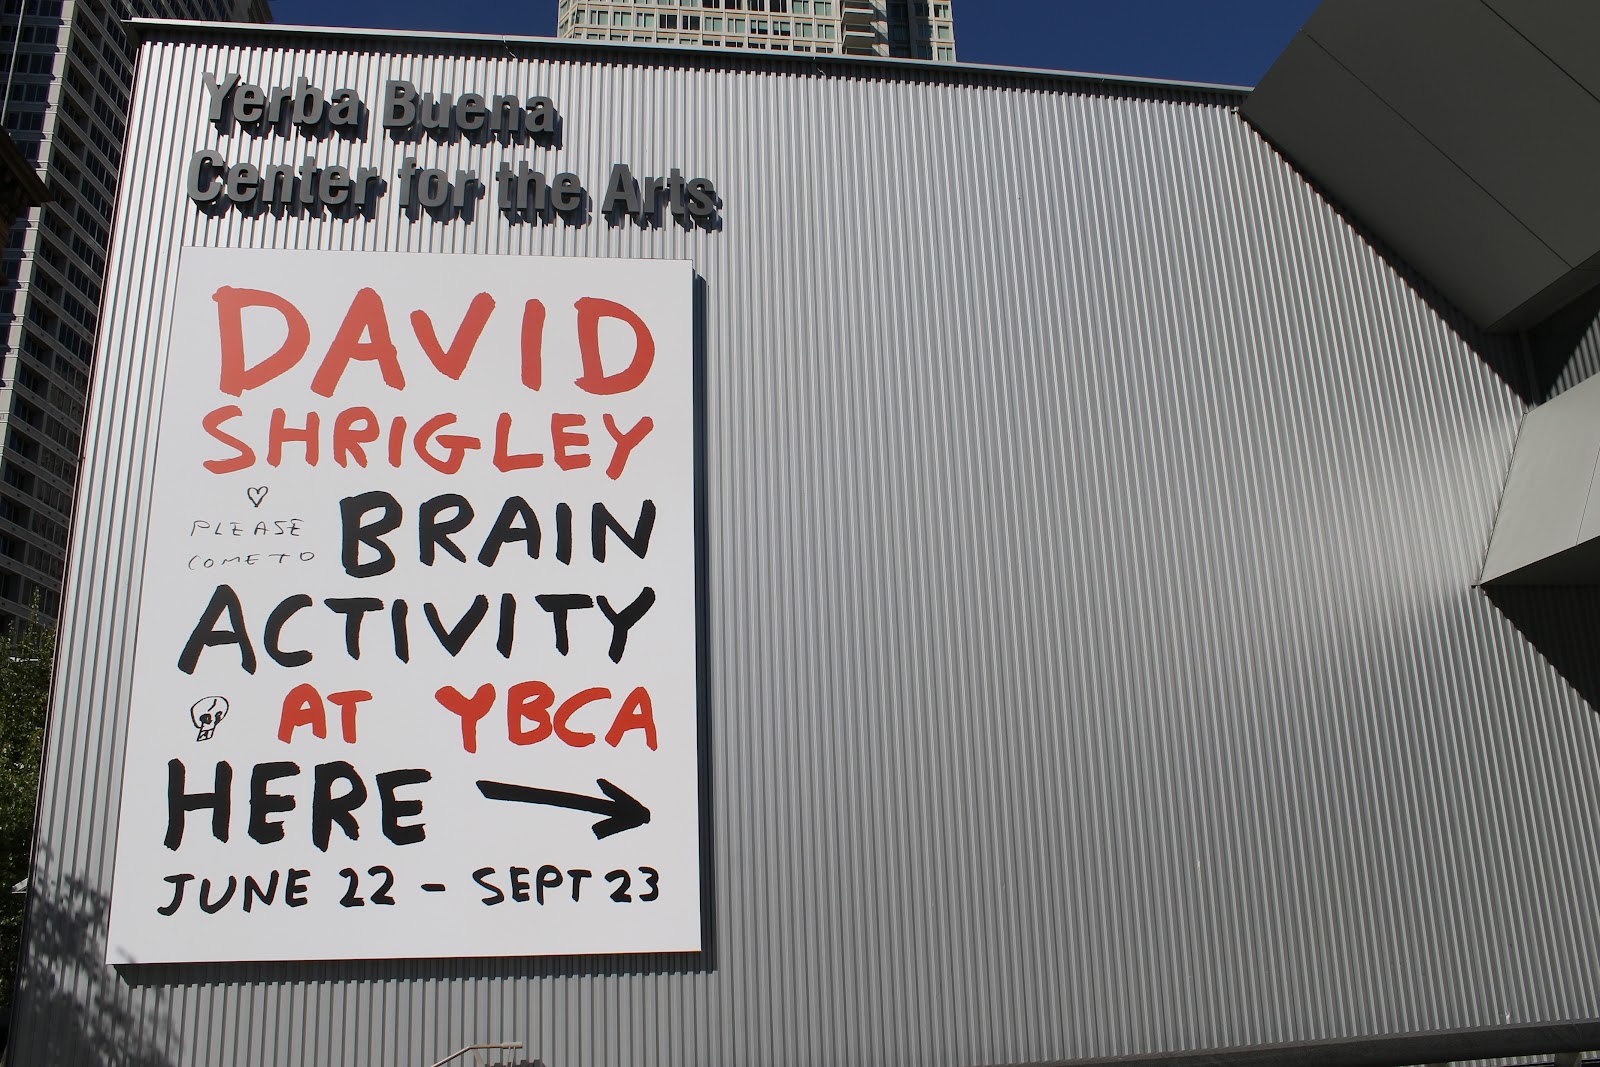 Yerba Buena
Center for the Arts
DAVID
SHRIGLEY
PLEASE
COME TO
BRAIN
ACTIVITY
AT YBCA
HERE
JUNE 22 - SEPT 23